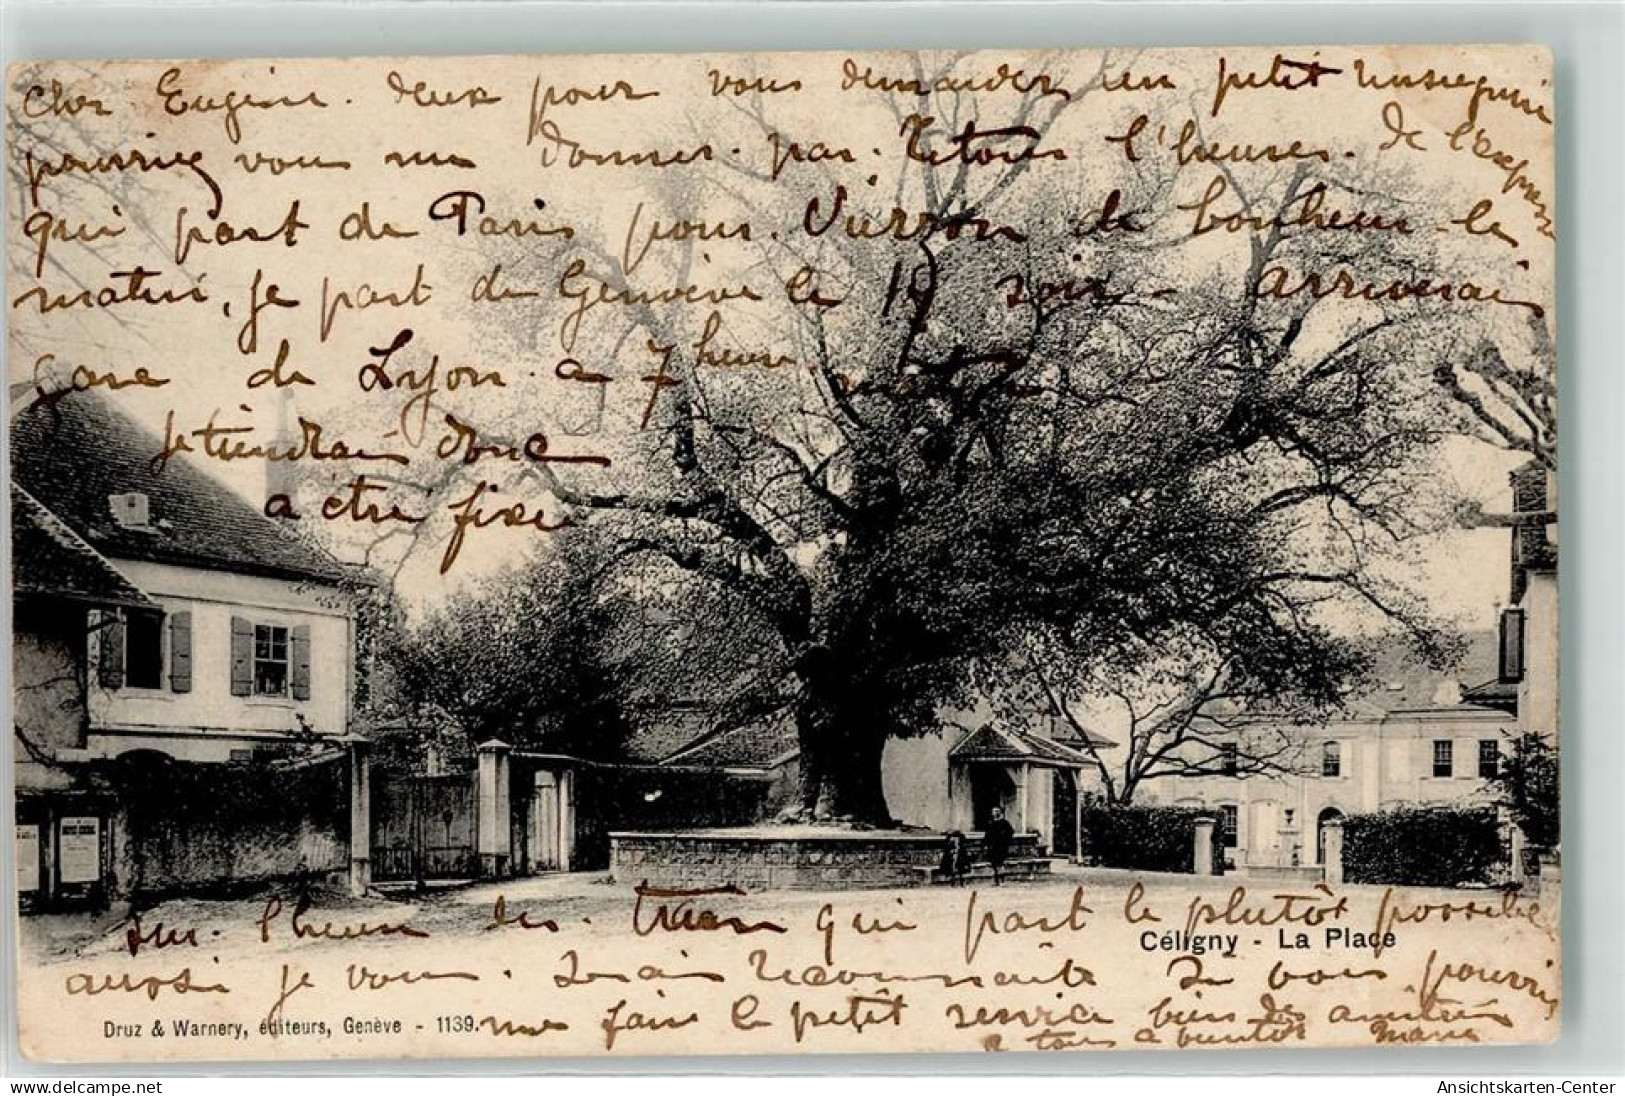 cher Eugène. deux pour vous demander un petit
pourriez vous me donner par. retour l'heure. de l'express
qui part de Paris pour Vierzon de bonheur le
matin, je part de Genève le 19 soir arriverai
gare de Lyon a 7 heure matin
je tiendrai donc
a être fixe
sur l'heure des train qui part le plutôt possible
Céligny - La Place
aussi je vous serai reconnaite si vous pourriez
me faire le petit service bien des amitiés
a tous a bientôt Marie
Druz & Warnery, éditeurs, Genève - 1139.
Ansichtskarten-Center